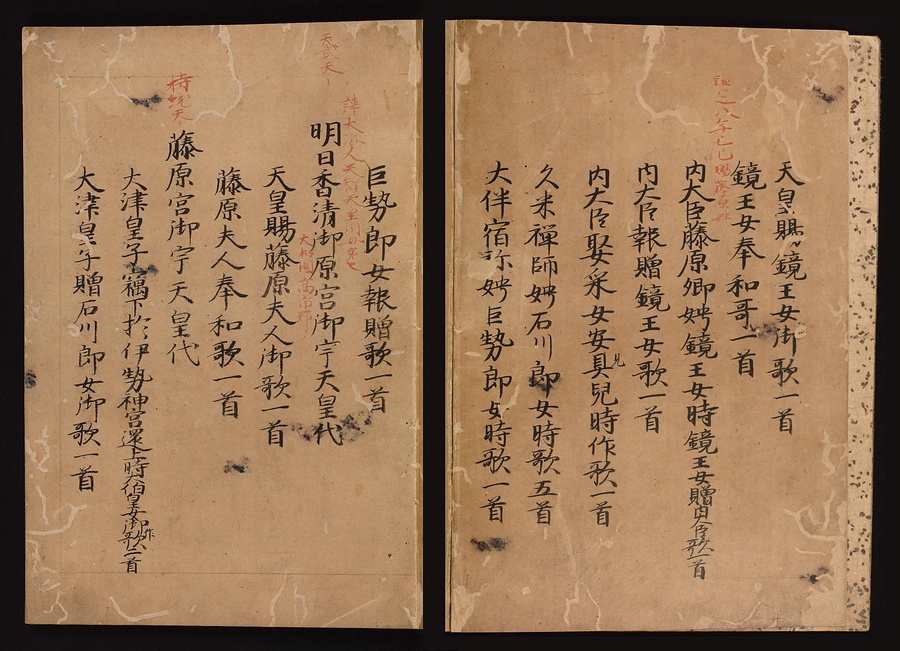 天皇賜鏡王女御歌一首
鏡王女奉和哥一首
内大臣藤原卿娉鏡王女時鏡王女贈内大臣歌一首
内大臣報贈鏡王女歌一首
内大臣娶采女安見兒時作歌一首
久米禅師娉石川郎女時歌五首
大伴宿祢娉巨勢郎女時歌一首
巨勢郎女報贈歌一首
天武天
明日香清御原宮御宇天皇代
天皇賜藤原夫人御歌一首
藤原夫人奉和歌一首
持統天
藤原宮御宇天皇代
大津皇子竊下於伊勢神宮還上時大伯皇女御作歌二首
大津皇子贈石川郎女御歌一首